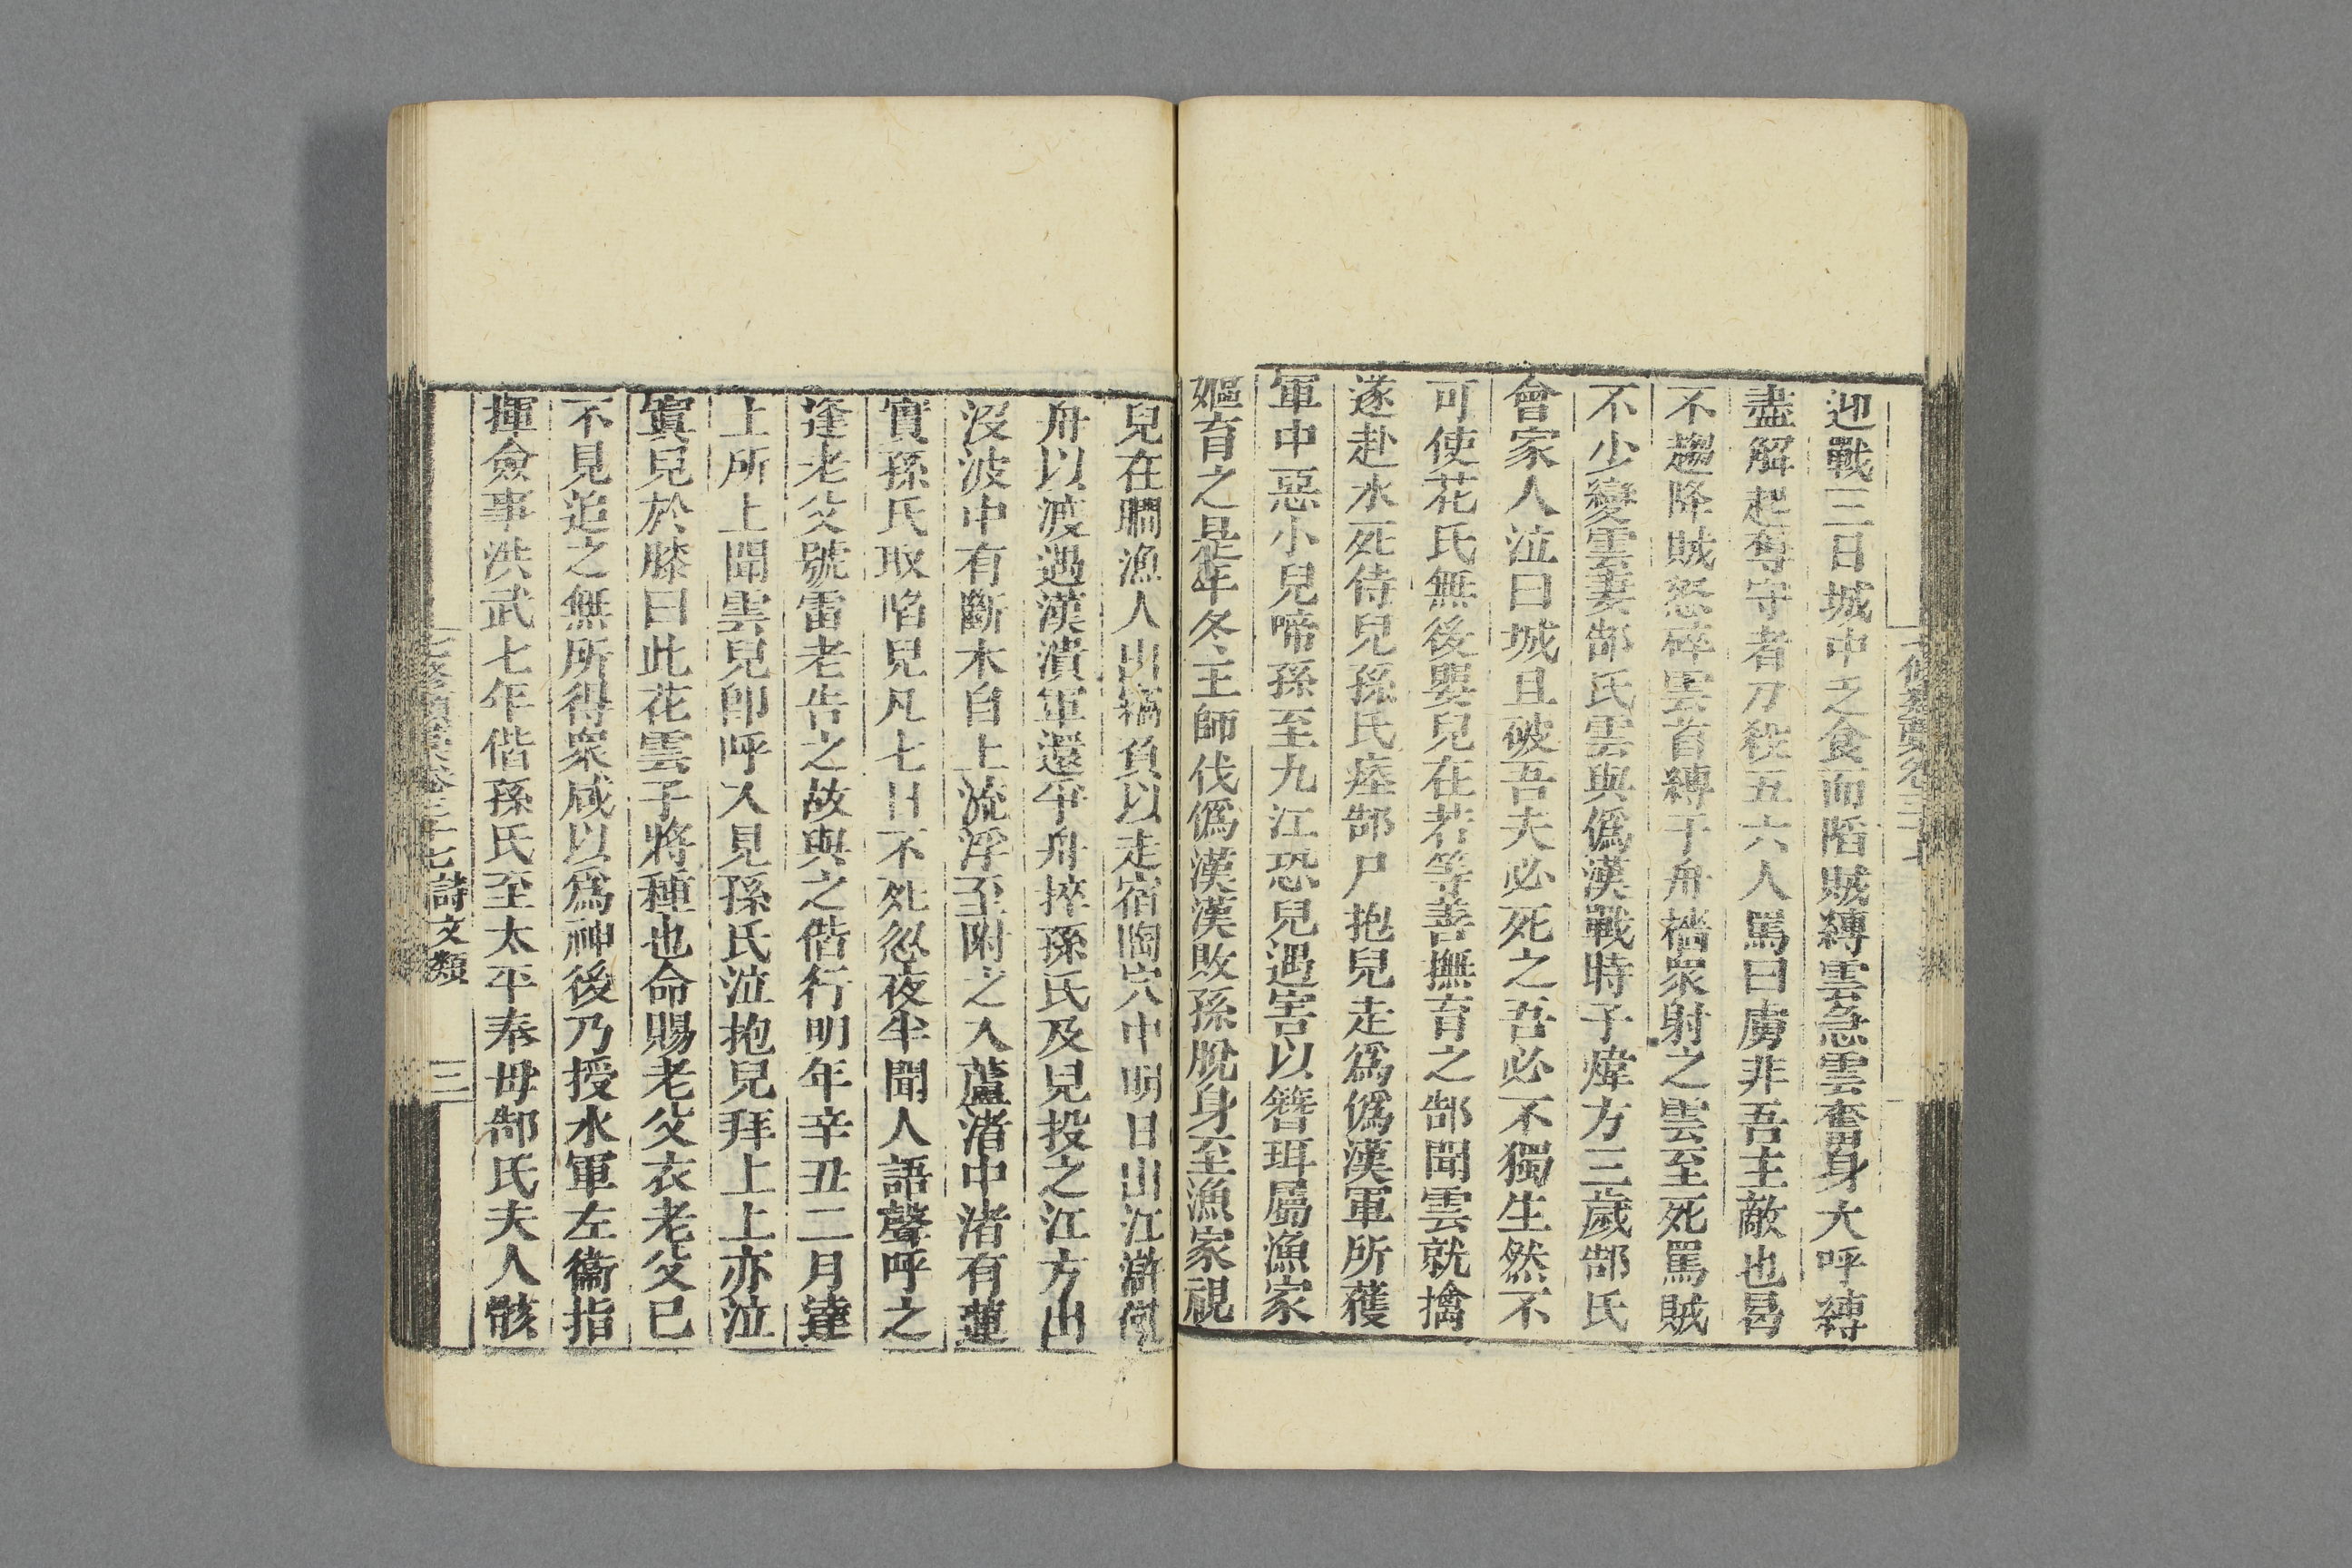 迎戰三日城中乏食而陷賊縛雲急雲奮身大呼縛
盡解起奪守者刀殺五六人罵曰虜非吾主敵也曷
不趨降賊怒碎雲首縛于舟檣衆射之雲至死罵賊
不少變雲妻郜氏雲與僞漢戰時子煒方三歲郜氏
會家人泣曰城且破吾夫必死之吾必不獨生然不
可使花氏無後嬰兒在若等善撫育之郜聞雲就擒
遂赴水死侍兒孫氏瘞郜尸抱兒走爲僞漢軍所獲
軍中惡小兒啼孫至九江恐兒遇害以簪珥屬漁家
嫗育之是年冬王師伐僞漢漢敗孫脫身至漁家視
兒在瞷漁人出竊負以走宿陶穴中明日出江滸僦
舟以渡遇漢潰軍還爭舟捽孫氏及兒投之江方出
沒波中有斷木自上流浮至附之入蘆渚中渚有蓮
實孫氏取啗兒凡七日不死忽夜半聞人語聲呼之
逢老父號雷老告之故與之偕行明年辛丑二月達
上所上聞雲兒卽呼入見孫氏泣抱兒拜上上亦泣
寘兒於膝曰此花雲子將種也命賜老父衣老父已
不見追之無所得衆咸以爲神後乃授水軍左衞指
揮僉事洪武七年偕孫氏至太平奉母郜氏夫人骸
七修類藁卷三十七 詩文類 三